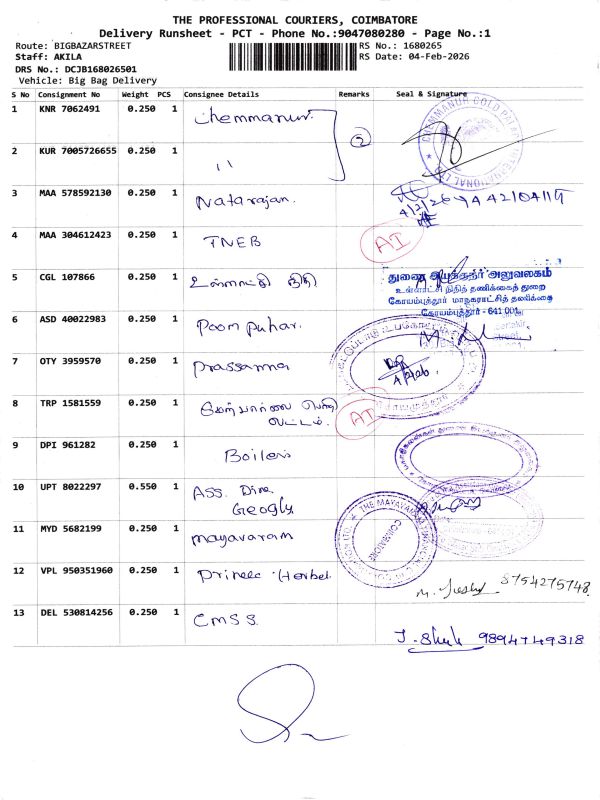 THE PROFESSIONAL COURIERS, COIMBATORE
Delivery Runsheet - PCT - Phone No.:9047080280 - Page No.:1
Route: BIGBAZARSTREET
RS No.: 1680265
Staff: AKILA
RS Date: 04-Feb-2026
DRS No.: DCJB168026501
Vehicle: Big Bag Delivery
S No Consignment No Weight PCS Consignee Details Remarks Seal & Signature
1 KNR 7062491 0.250 1 Chemmanur
2
2 KUR 7005726655 0.250 1 "
3 MAA 578592130 0.250 1 Natarajan.
4/2/26
4 MAA 304612423 0.250 1 TNEB AI
5 CGL 107866 0.250 1 உள்ளாட்சி நிதி
துணை இயக்குநர் அலுவலகம்
உள்ளாட்சி நிதித் தணிக்கைத் துறை
கோயம்புத்தூர் மாநகராட்சித் தணிக்கை
கோயம்புத்தூர் - 641 001.
6 ASD 40022983 0.250 1 Poom puhar.
7 OTY 3959570 0.250 1 Prassanna
4/2/26.
8 TRP 1581559 0.250 1 AI
வட்டம்.
9 DPI 961282 0.250 1 Boilers
10 UPT 8022297 0.550 1 Ass. Dire
Geogly
11 MYD 5682199 0.250 1 Mayavaram
COIMBATORE
12 VPL 950351960 0.250 1 Prince Herbel
8754275748.
13 DEL 530814256 0.250 1 CMSS.
9894749318